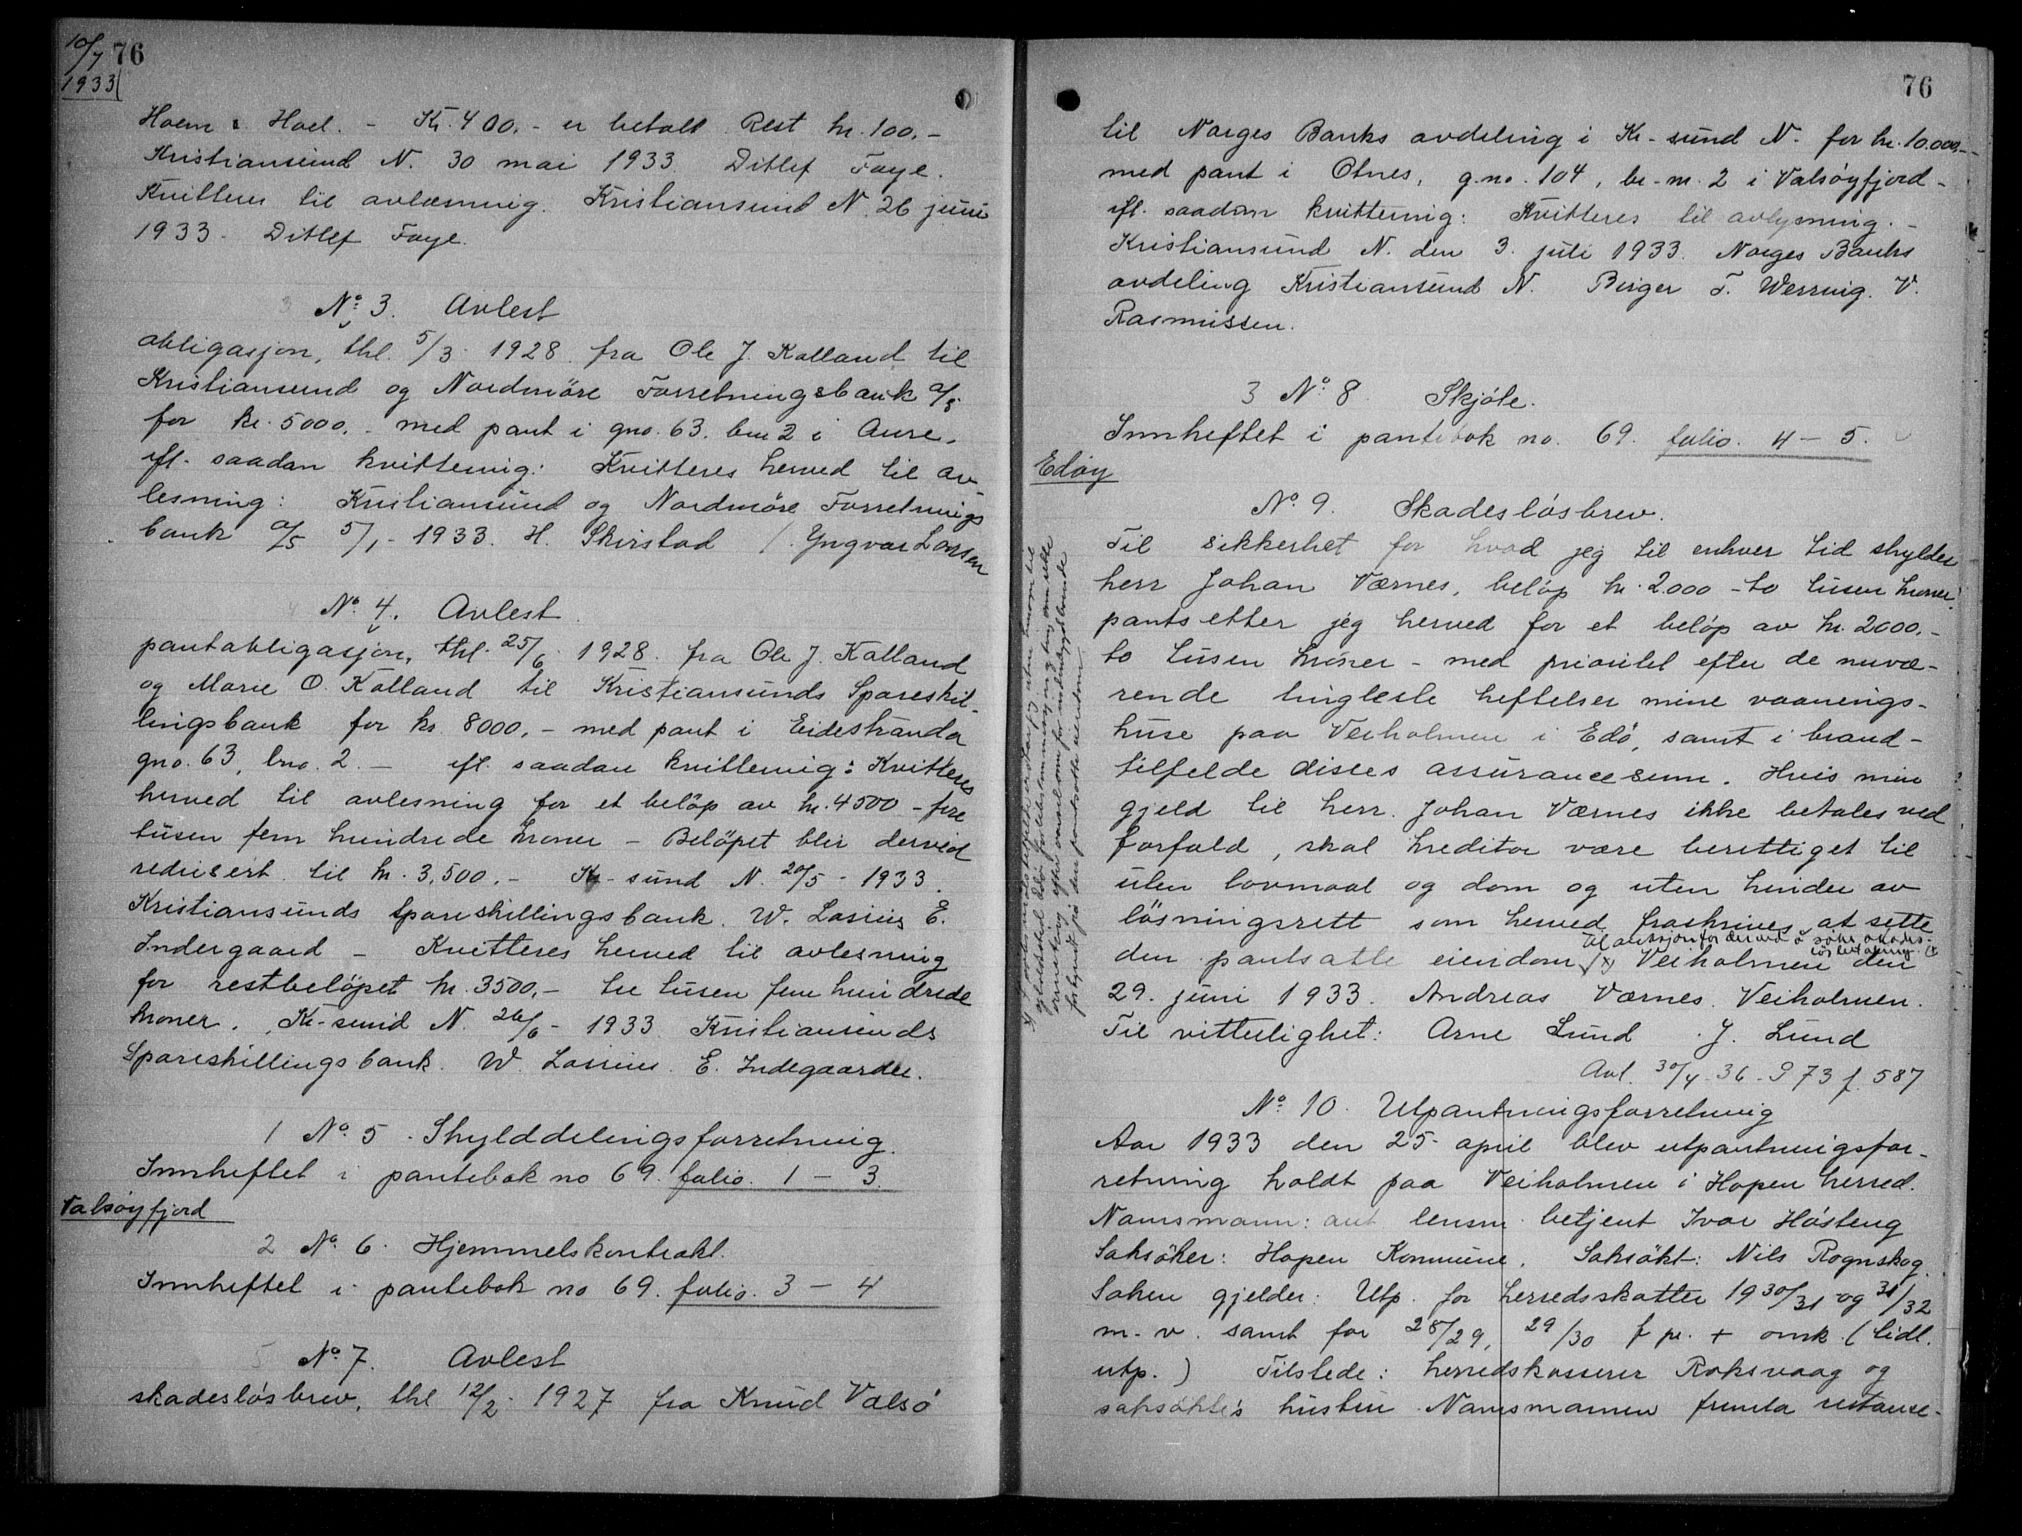 10/7 76
1933
Hoem i Hoel. - Kr. 400.- er betalt. Rest kr. 100.-
Kristiansund N. 30 mai 1933. Ditlef Faye.
Kvitteres til avlæsning. Kristiansund N. 26 juni
1933. Ditlef Faye.
No. 3. Avlest
obligasjon, thl. 5/3 1928 fra Ole J. Kalland til
Kristiansund og Nordmöre Forretningsbank A/S
for kr. 5000.- med pant i gno. 63. bno 2 i Aure.
efl. saadan kvittering: Kvitteres herved til av-
lesning: Kristiansund og Nordmöre Forretnings
bank A/S 5/1 - 1933. H. Skirstad /. Yngvar Larsen
No. 4. Avlest
pantobligasjon, thl. 25/6 1928 fra Ole J. Kalland
og Marie O. Kalland til Kristiansunds Spareskil-
lingsbank for kr 8000.- med pant i Eidestranda
gno. 63, bno. 2. - efl. saadan kvittering: Kvitteres
herved til avlesning for et belöp av kr. 4500 - fire
tusen fem hundrede kroner - Belöpet blir derved
redusert til kr. 3,500.- Kr-sund N. 20/5 - 1933.
Kristiansunds Spareskillingsbank. W. Lasius E.
Indergaard - Kvitteres herved til avlesning
for restbelöpet kr. 3500.- tre tusen fem hundrede
kroner. Kr-sund N. 26/6 - 1933 Kristiansunds
Spareskillingsbank. W. Lasius. E. Indegaarden.
1 No. 5. Skylddelingsforretning.
Innheftet i pantebok no 69. folio. 1 - 3.
Valsøyfjord
2 No. 6. Hjemmelskontrakt.
Innheftet i pantebok no 69. folio. 3 - 4
5 No. 7. Avlest
skadeslösbrev, thl 12/2 - 1927 fra Knud Valsö
76
til Norges Banks avdeling i Kr-sund N. for kr. 10.000,-
med pant i Otnes, g.no. 104, br-nr. 2 i Valsöyfjord -
efl. saadan kvittering: Kvitteres til avlysning. -
Kristiansund N. den 3. juli 1933. Norges Banks
avdeling Kristiansund N. Birger T. Werring. V.
Rasmussen.
3 No. 8 Skjöte.
Innheftet i pantebok no. 69. folio. 4 - 5.
Edøy
No. 9. Skadeslösbrev.
Til sikkerhet for hvad jeg til enhver tid skylder
herr Johan Værnes, belöp kr. 2.000 - to tusen kroner,
pantsetter jeg herved for et belöp av kr. 2000.-
to tusen kroner - med prioritet efter de nuvæ-
rende tingleste heftelser mine vaanings-
huse paa Veiholmen i Edö, samt i brand-
tilfelde disses assurancesum. Hvis min
gjeld til herr. Johan Værnes ikke betales ved
forfald, skal kreditor være berettiget til
uten lovmaal og dom og uten hinder av
lösningsrett som herved fraskrives at sette
til auksjon for derved å søke skades-
løs betaling. (x
den pantsatte eiendom /x) Veiholmen den
29. juni 1933. Andreas Værnes. Veiholmen.
Til vitterlighet: Arne Lund J. Lund
Avl. 30/4-36-P 73 f. 587
No. 10. Utpantningsforretning
Aar 1933 den 25. april blev utpantningsfor-
retning holdt paa Veiholmen i Hopen herred.
Namsmann: aut lensm. betjent Ivar Hösteng
Saksöker: Hopen Kommune. Saksökt: Nils Rognskog.
Saken gjelder: Utp. for herredsskatter 1930/31 og 31/32
m. v. samt for 28/29, 29/30 f pr. + omk. (tidl.
utp.) Tilstede: herredskasserer Roksvaag og
saksöktes hustru. Namsmannen fremla restanse-